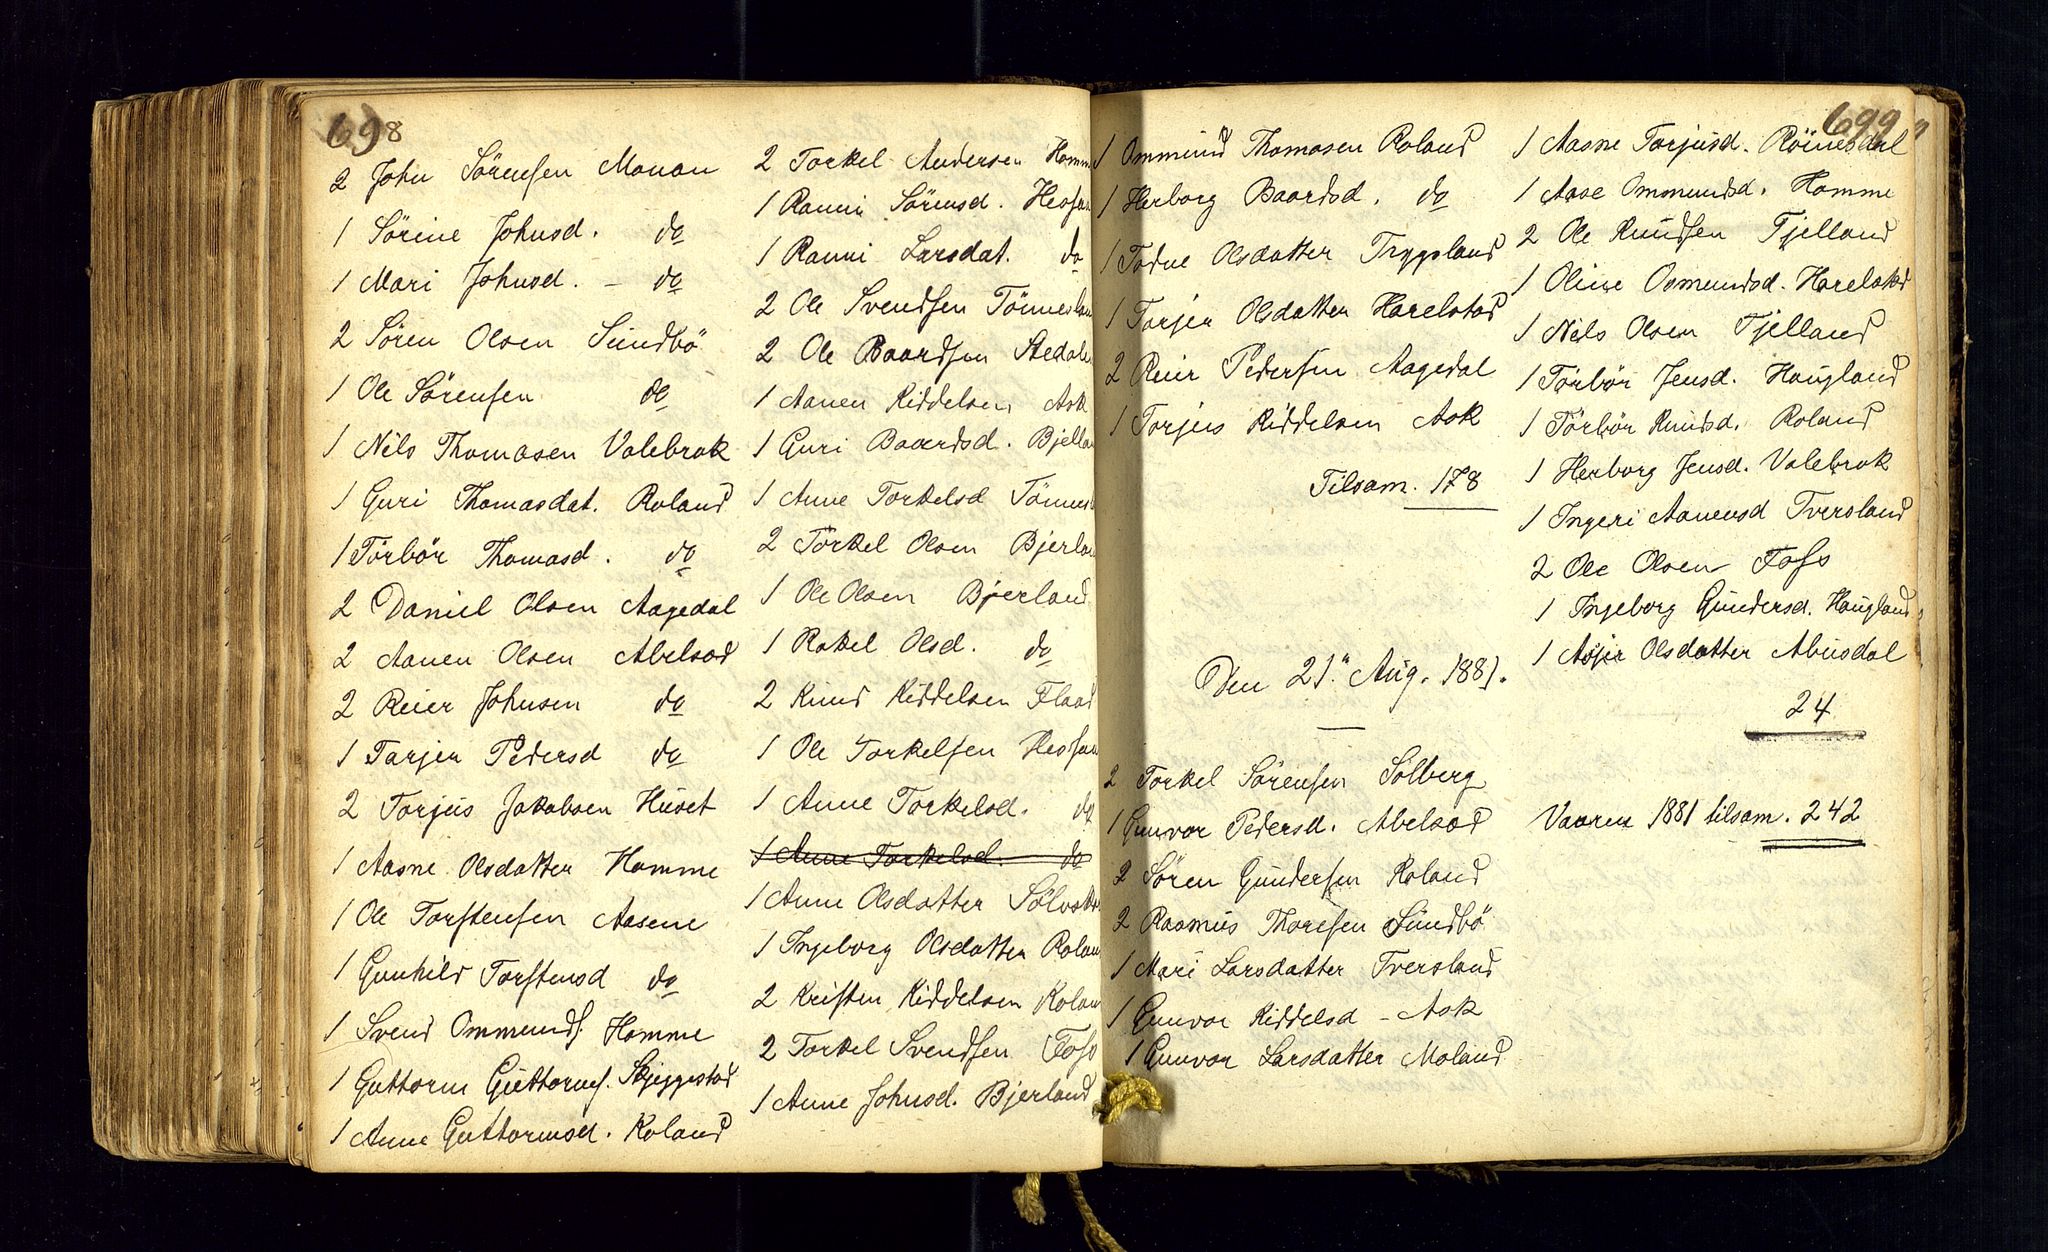 698
2 John Sörensen Monan
1 Sörine Johnsd. do
1 Mari Johnsd. - do
2 Sören Olsen Sundbö
1 Ole Sörensen do
1 Nils Thomasen Valebrok
1 Guri Thomasdat. Roland
1 Törbör Thomasd. do
2 Daniel Olsen Aagedal
2 Aanen Olsen Abelsod
2 Reier Johnsen do
1 Tarjer Pedersd do
2 Torjus Jakobsen Huset
1 Aasne Olsdatter Homme
1 Ole Torstensen Aasene
1 Gunhild Torstensd do
1 Svend Ommunds. Homme
1 Guttorm Guttorms. Skjeggestad
1 Anne Guttormsd. Roland
2 Torkel Andersen Homm
1 Ranni Sörensd.
1 Ranni Larsdat. do
2 Ole Svendsen Tönnesla
2 Ole Baardsen
1 Aanen Kiddelsen Ask
1 Guri Baardsd. Bjella
1 Anne Torkelsd Tönnes
2 Törkel Olsen Bjerlan
1 Ole Olsen Bjerland
1 Rakel Olsd. do
2 Knud Kiddelsen Flaad
1 Ole Torkelsen
1 Anne Torkelsd. do
1 Anne Torkelsd. do
1 Anne Olsdatter
1 Ingeborg Olsdatter Rolan
2 Kristen Kiddelsen Rolan
2 Torkel Svendsen Foss
1 Anne Johnsd. Bjerland
699
1 Ommund Thomasen Roland
1 Herborg Baardsd. do
1 Todne Olsdatter Trygsland
1 Torjer Olsdatter Harelstad
2 Reier Pedersen Aagedal
1 Torjus Kiddelsen Ask
Tilsam. 178
Den 21. Aug. 1881.
2 Torkel Sörensen Solberg
1 Gunvor Pedersd. Abelsod
2 Sören Gundersen Roland
2 Rasmus Thoresen Sundbö
1 Mari Larsdatter Tversland
1 Gunvor Kiddelsd - Ask
1 Gunvor Larsdatter Moland
1 Aasne Torjusd. Röinesdal
1 Aase Ommundsd. Homme
2 Ole Knudsen Fjelland
1 Oline Osmundsd. Harelstad
1 Nils Olsen Fjelland
1 Törbör Jensd. Haugland
1 Törbör Knudsd. Roland
1 Herborg Jensd. Valebrok
1 Ingeri Aanensd Tversland
2 Ole Olsen Foss
1 Ingeborg Gundersd. Haugland
1 Asjer Olsdatter Abusdal
24
Vaaren 1881 tilsam. 242